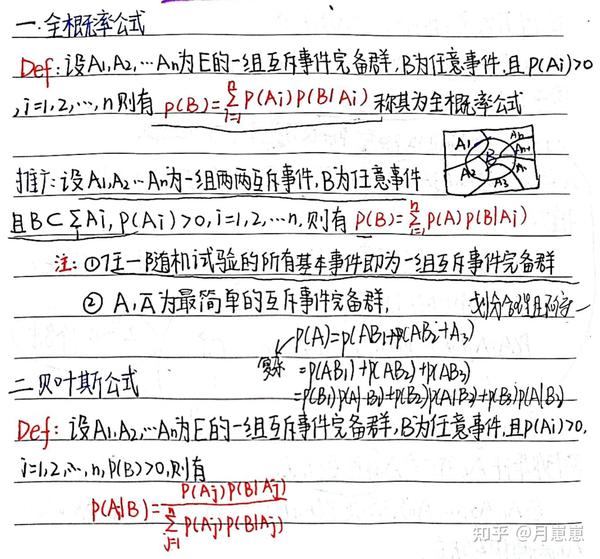 一.全概率公式
Def:设A1,A2,…An为E的一组互斥事件完备群,B为任意事件,且P(Ai)>0
,i=1,2,…,n则有 P(B)=∑_{i=1}^{n}P(Ai)P(B|Ai) 称其为全概率公式
A1 B A2 A3 An An-1
推广:设A1,A2…An为一组两两互斥事件,B为任意事件
且B⊂∑Ai,P(Ai)>0,i=1,2,…n,则有P(B)=∑_{i=1}^{n}P(A)P(B|Ai)
注:①任一随机试验的所有基本事件即为一组互斥事件完备群
②A,A̅为最简单的互斥事件完备群,
划分合理且不唯一
P(A)=P(AB1+
=P(AB1)+P(AB2)+P(AB3)
=P(B1)P(A|B1)+P(B2)P(A|B2)+P(B3)P(A|B3)
二.贝叶斯公式
Def:设A1,A2,…An为E的一组互斥事件完备群,B为任意事件,且P(Ai)>0,
i=1,2,…,n,P(B)>0,则有
P(Aj|B)=P(Aj)P(B|Aj)/∑_{j=1}^{n}P(Aj)P(B|Aj)
知乎 @月崽崽